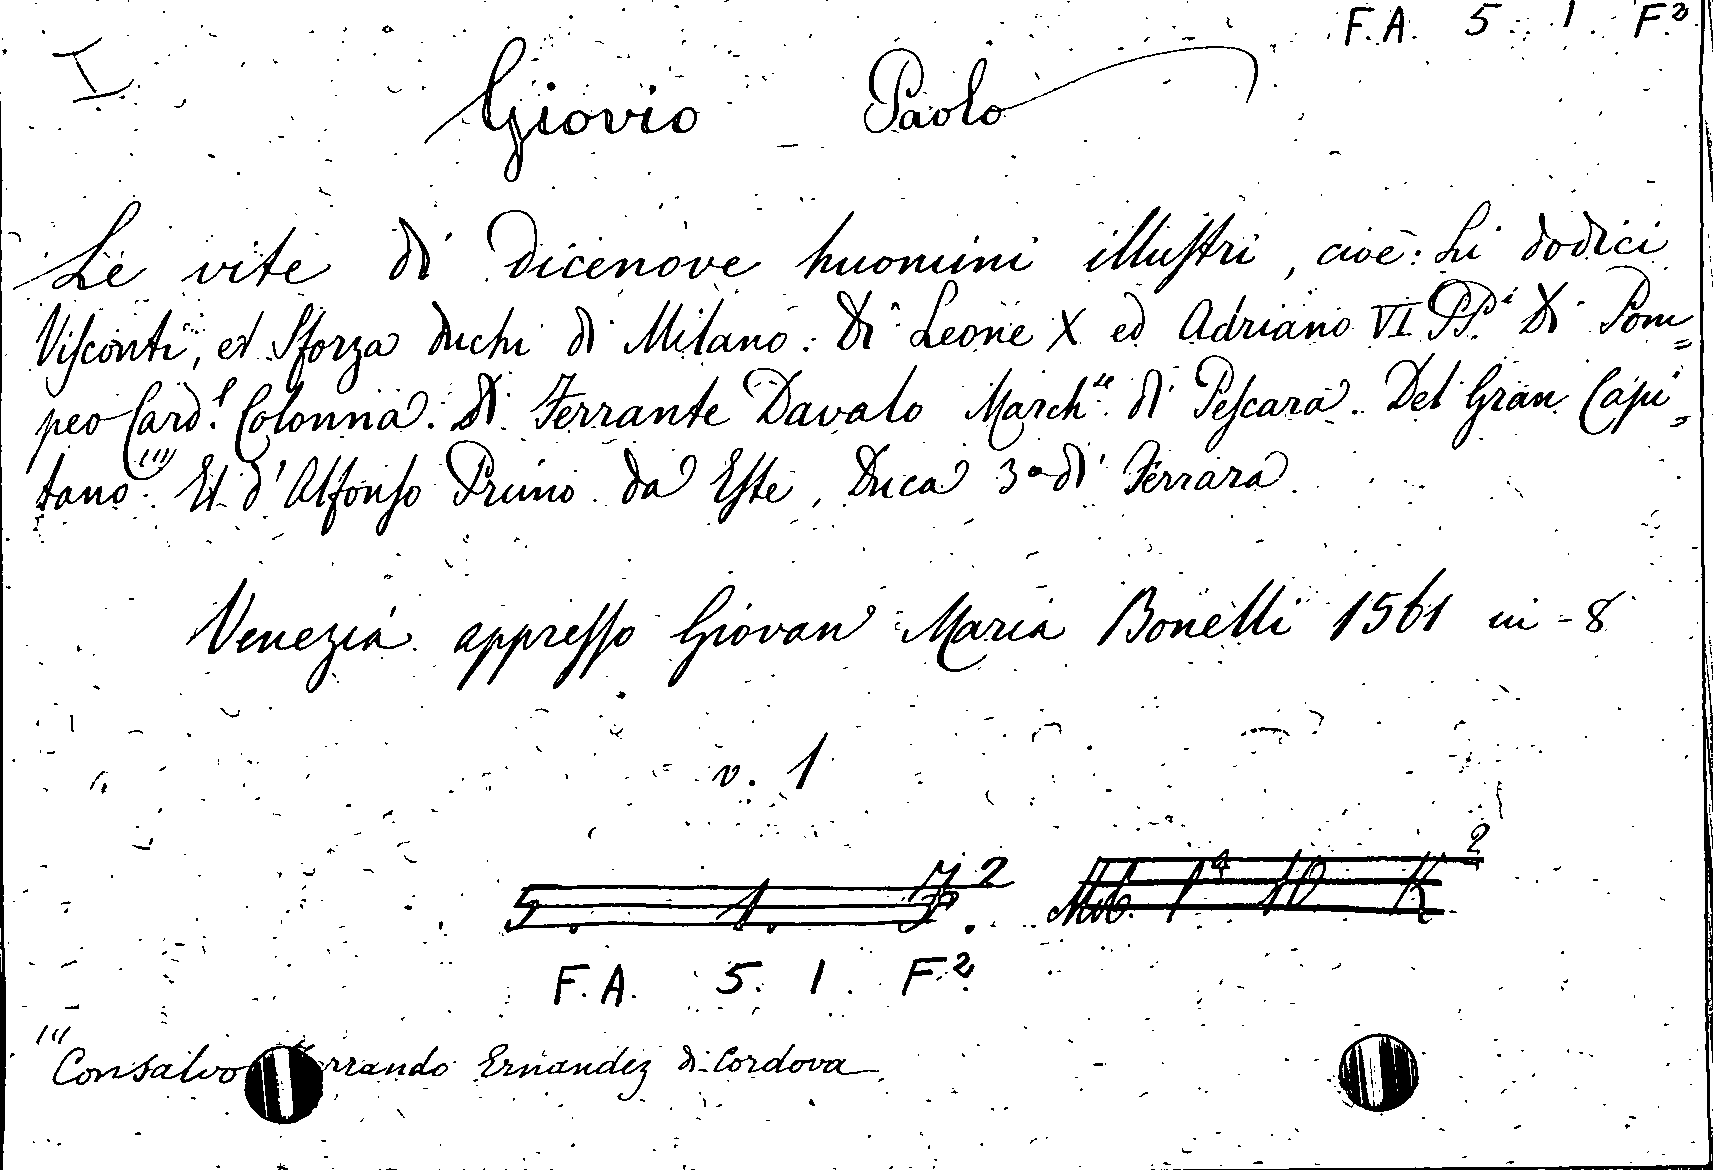 F.A. 5. 1. F²
I
Giovio Paolo
Le vite di dicenove huomini illustri, cioè: Li dodici
Visconti, et Sforza duchi di Milano. Di Leone X ed Adriano VI PP.ⁱ Di Pom=
peo Card.ˡ Colonna. Di Ferrante Davalo March.ˢᵉ di Pescara. Del Gran Capi=
tano (1) Et d'Alfonso Primo da Este, Duca 3º di Ferrara
Venezia appresso Giovan Maria Bonelli 1561 in-8
v. 1
5. 1. F². Mb. 1⁴ 10 K²
F.A. 5. 1. F²
(1) Consalvo rrando Ernandez di Cordova